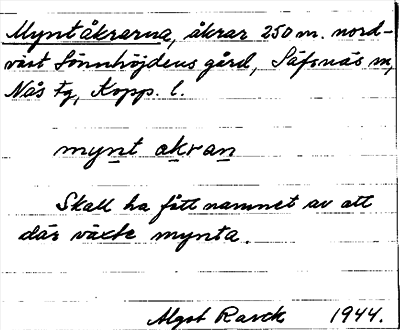 Myntåkrarna, åkrar 250 m. nord-
väst Sönnhöjdens gård, Säfsnäs sn,
Nås fg, Kopp. l.
mynt akran
Skall ha fått namnet av att
där växte mynta.
Algot Rarck 1944.